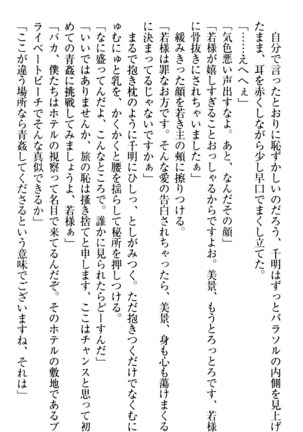 自分で言ったとおりに恥ずかしいのだろう、千明はずっとパラソルの内側を見上げ
たまま、耳を赤くしながら少し早口でまくし立てた。
「……えへへへぇ」
「気色悪い声出すなよ。あと、なんだその顔」
「若様が嬉しすぎることおっしゃるからですよぉ。美景、もうとろっとろです、若様
に骨抜きにされちゃいましたぁ」
緩みきった顔を若き主の頬に擦りつける。
「若様は罪なお方です。そんな愛の告白されちゃったら、美景、身も心も蕩けまくる
に決まってるじゃないですかぁ」
まるで抱き枕のように千明にひしっ、としがみつく。ただ抱きつくだけでなく、む
ぎゅむにゅと乳を、かくかくと腰を揺らして秘所を押しつける。
「なに盛ってんだよ、こんなところで。誰かに見られたらどーすんだ」
「いいではありませんか、旅の恥は掻き捨てと申します。ここはチャンスと思って初
めての青姦に挑戦してみましょうよ、若様ぁ」
「バカ、僕たちはホテルの視察って名目で来てるんだぞ。そのホテルの敷地であるプ
ライベートビーチでそんな真似できるか」
「ここが違う場所なら青姦してくださるという意味でございますね、それは」